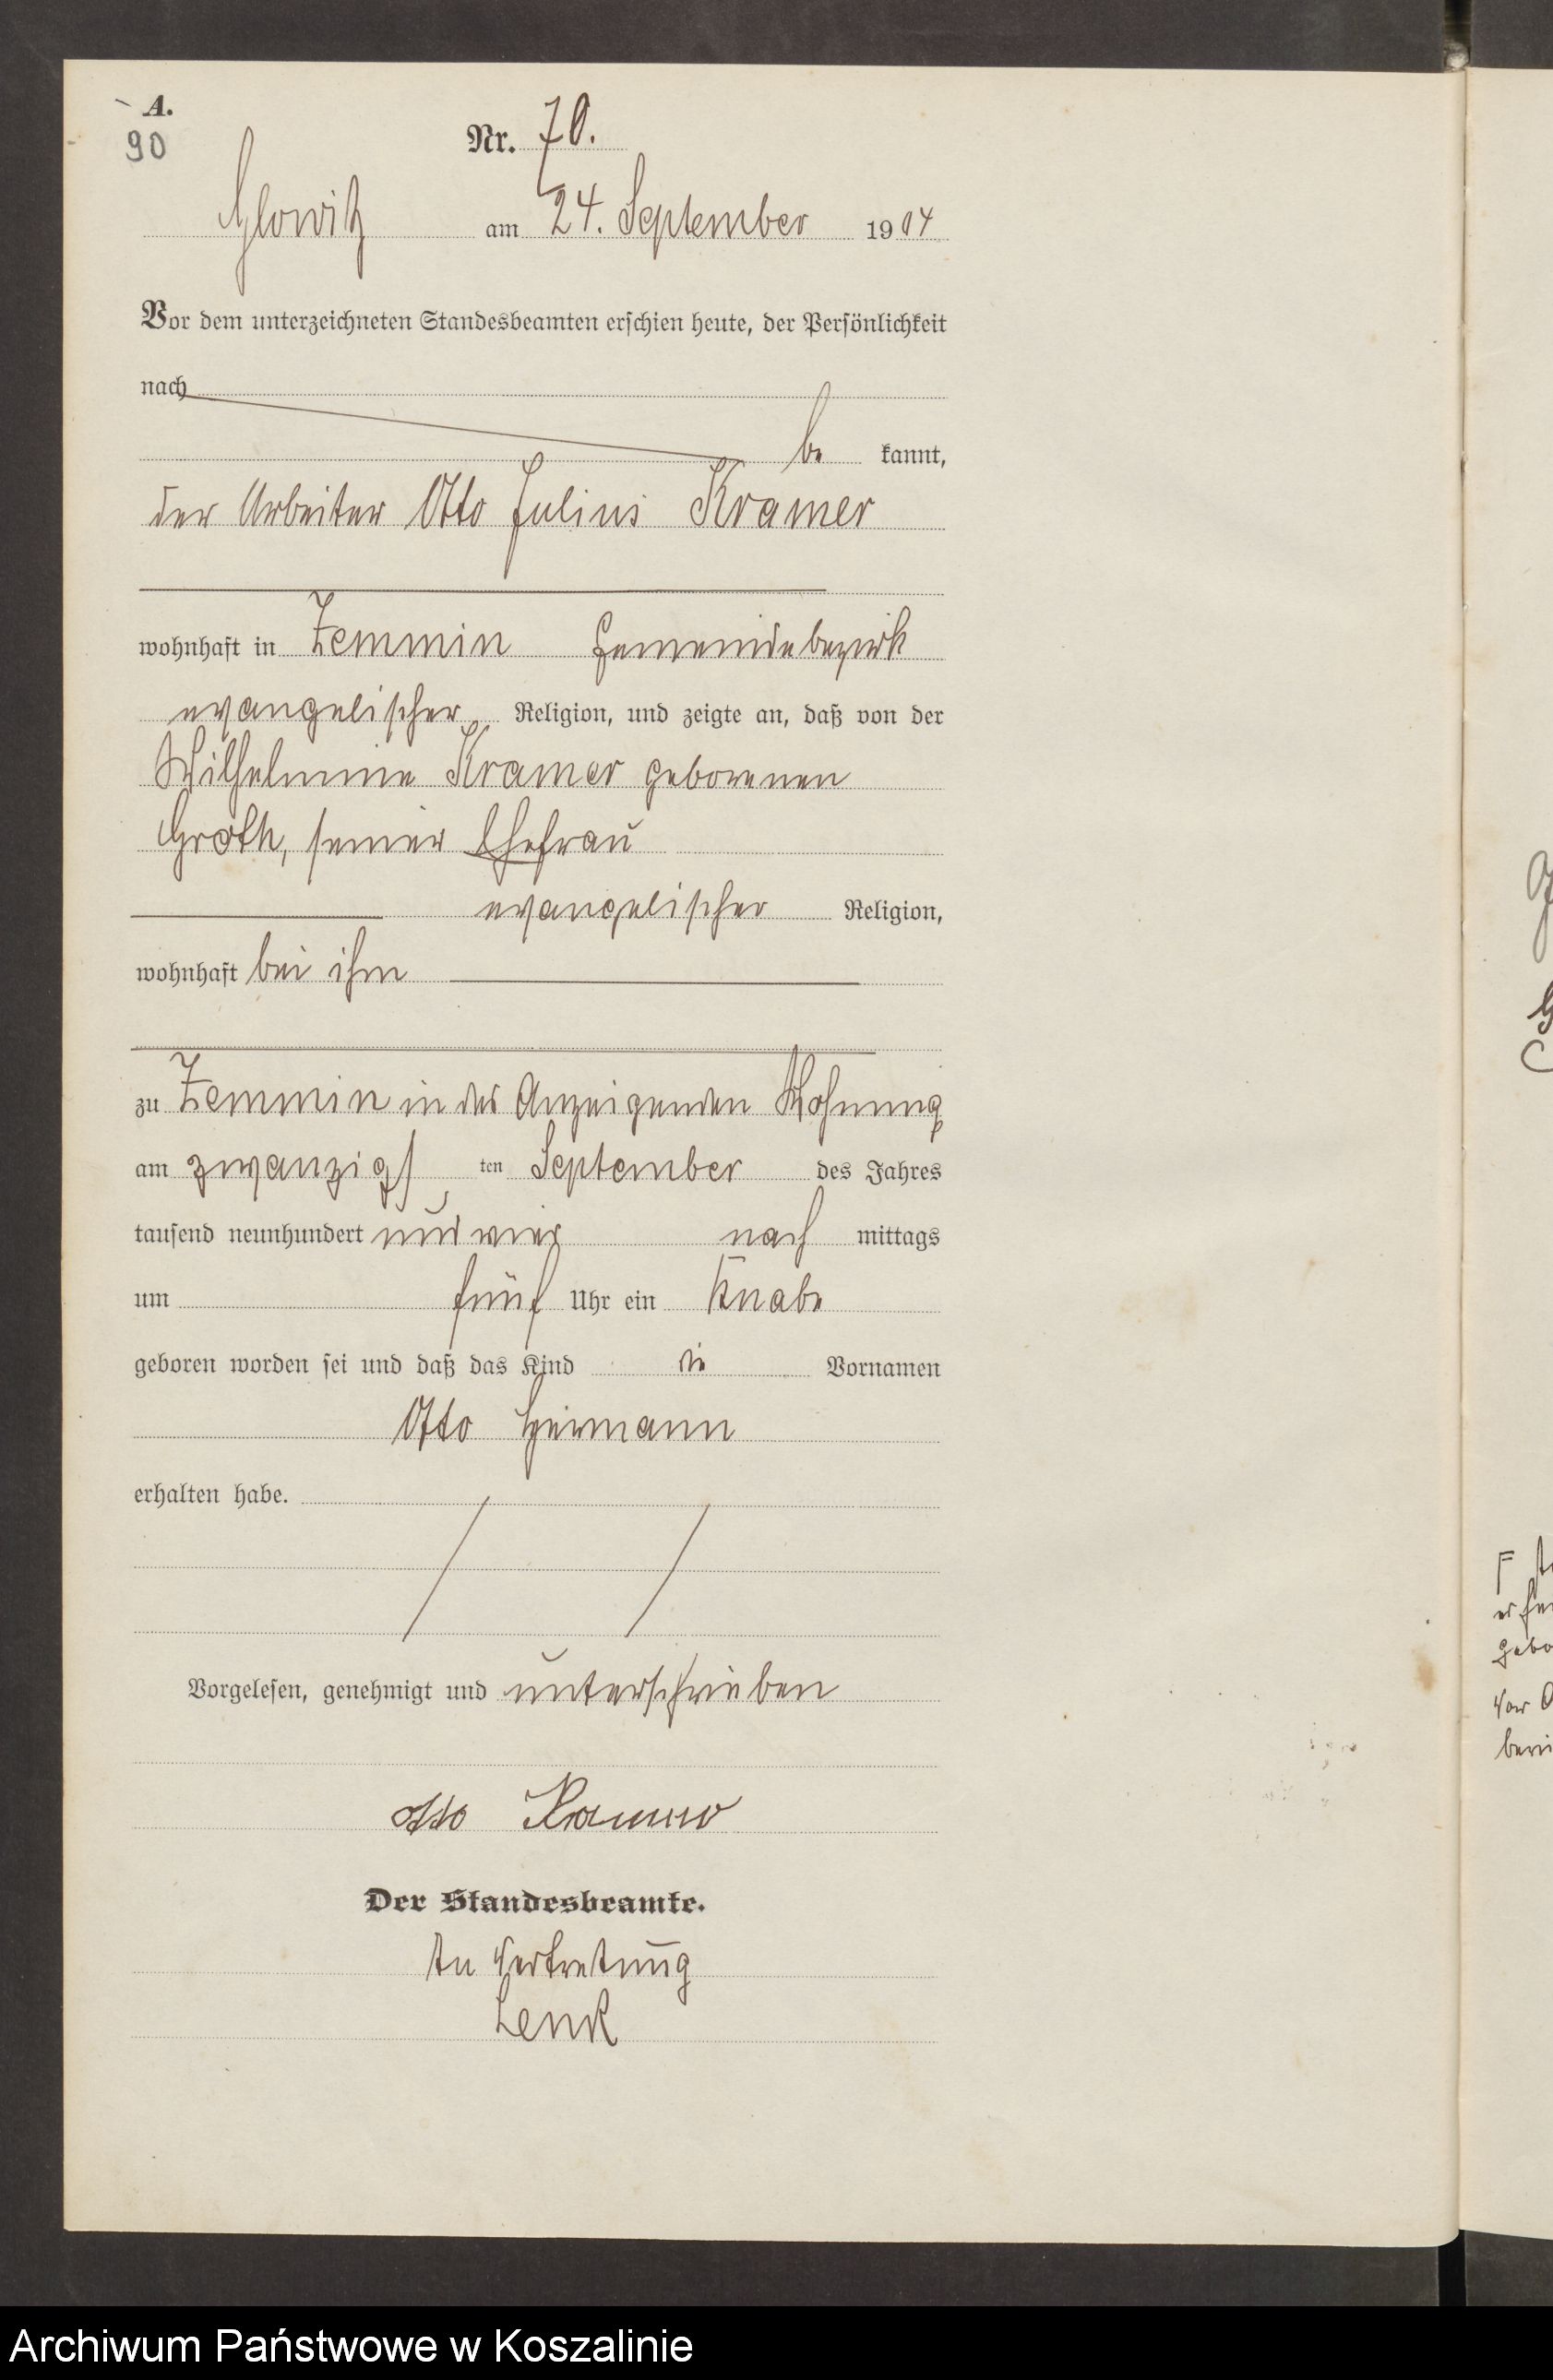 A.
90
Nr. 70.
Glowitz am 24. September 1904
Vor dem unterzeichneten Standesbeamten erschien heute, der Persönlichkeit
nach
be kannt,
der Arbeiter Otto Julius Kramer
wohnhaft in Zemmin Gemeindebezirk
evangelischer Religion, und zeigte an, daß von der
Wilhelmine Kramer geborenen
Groth, seiner Ehefrau
evangelischer Religion,
wohnhaft bei ihm
zu Zemmin in des Anzeigenden Wohnung
am zwanzigsten September des Jahres
tausend neunhundert und vier nach mittags
um fünf Uhr ein Knabe
geboren worden sei und daß das Kind die Vornamen
Otto Hermann
erhalten habe.
Vorgelesen, genehmigt und unterschrieben
Otto Kramer
Der Standesbeamte.
In Vertretung
Lenk
Archiwum Państwowe w Koszalinie